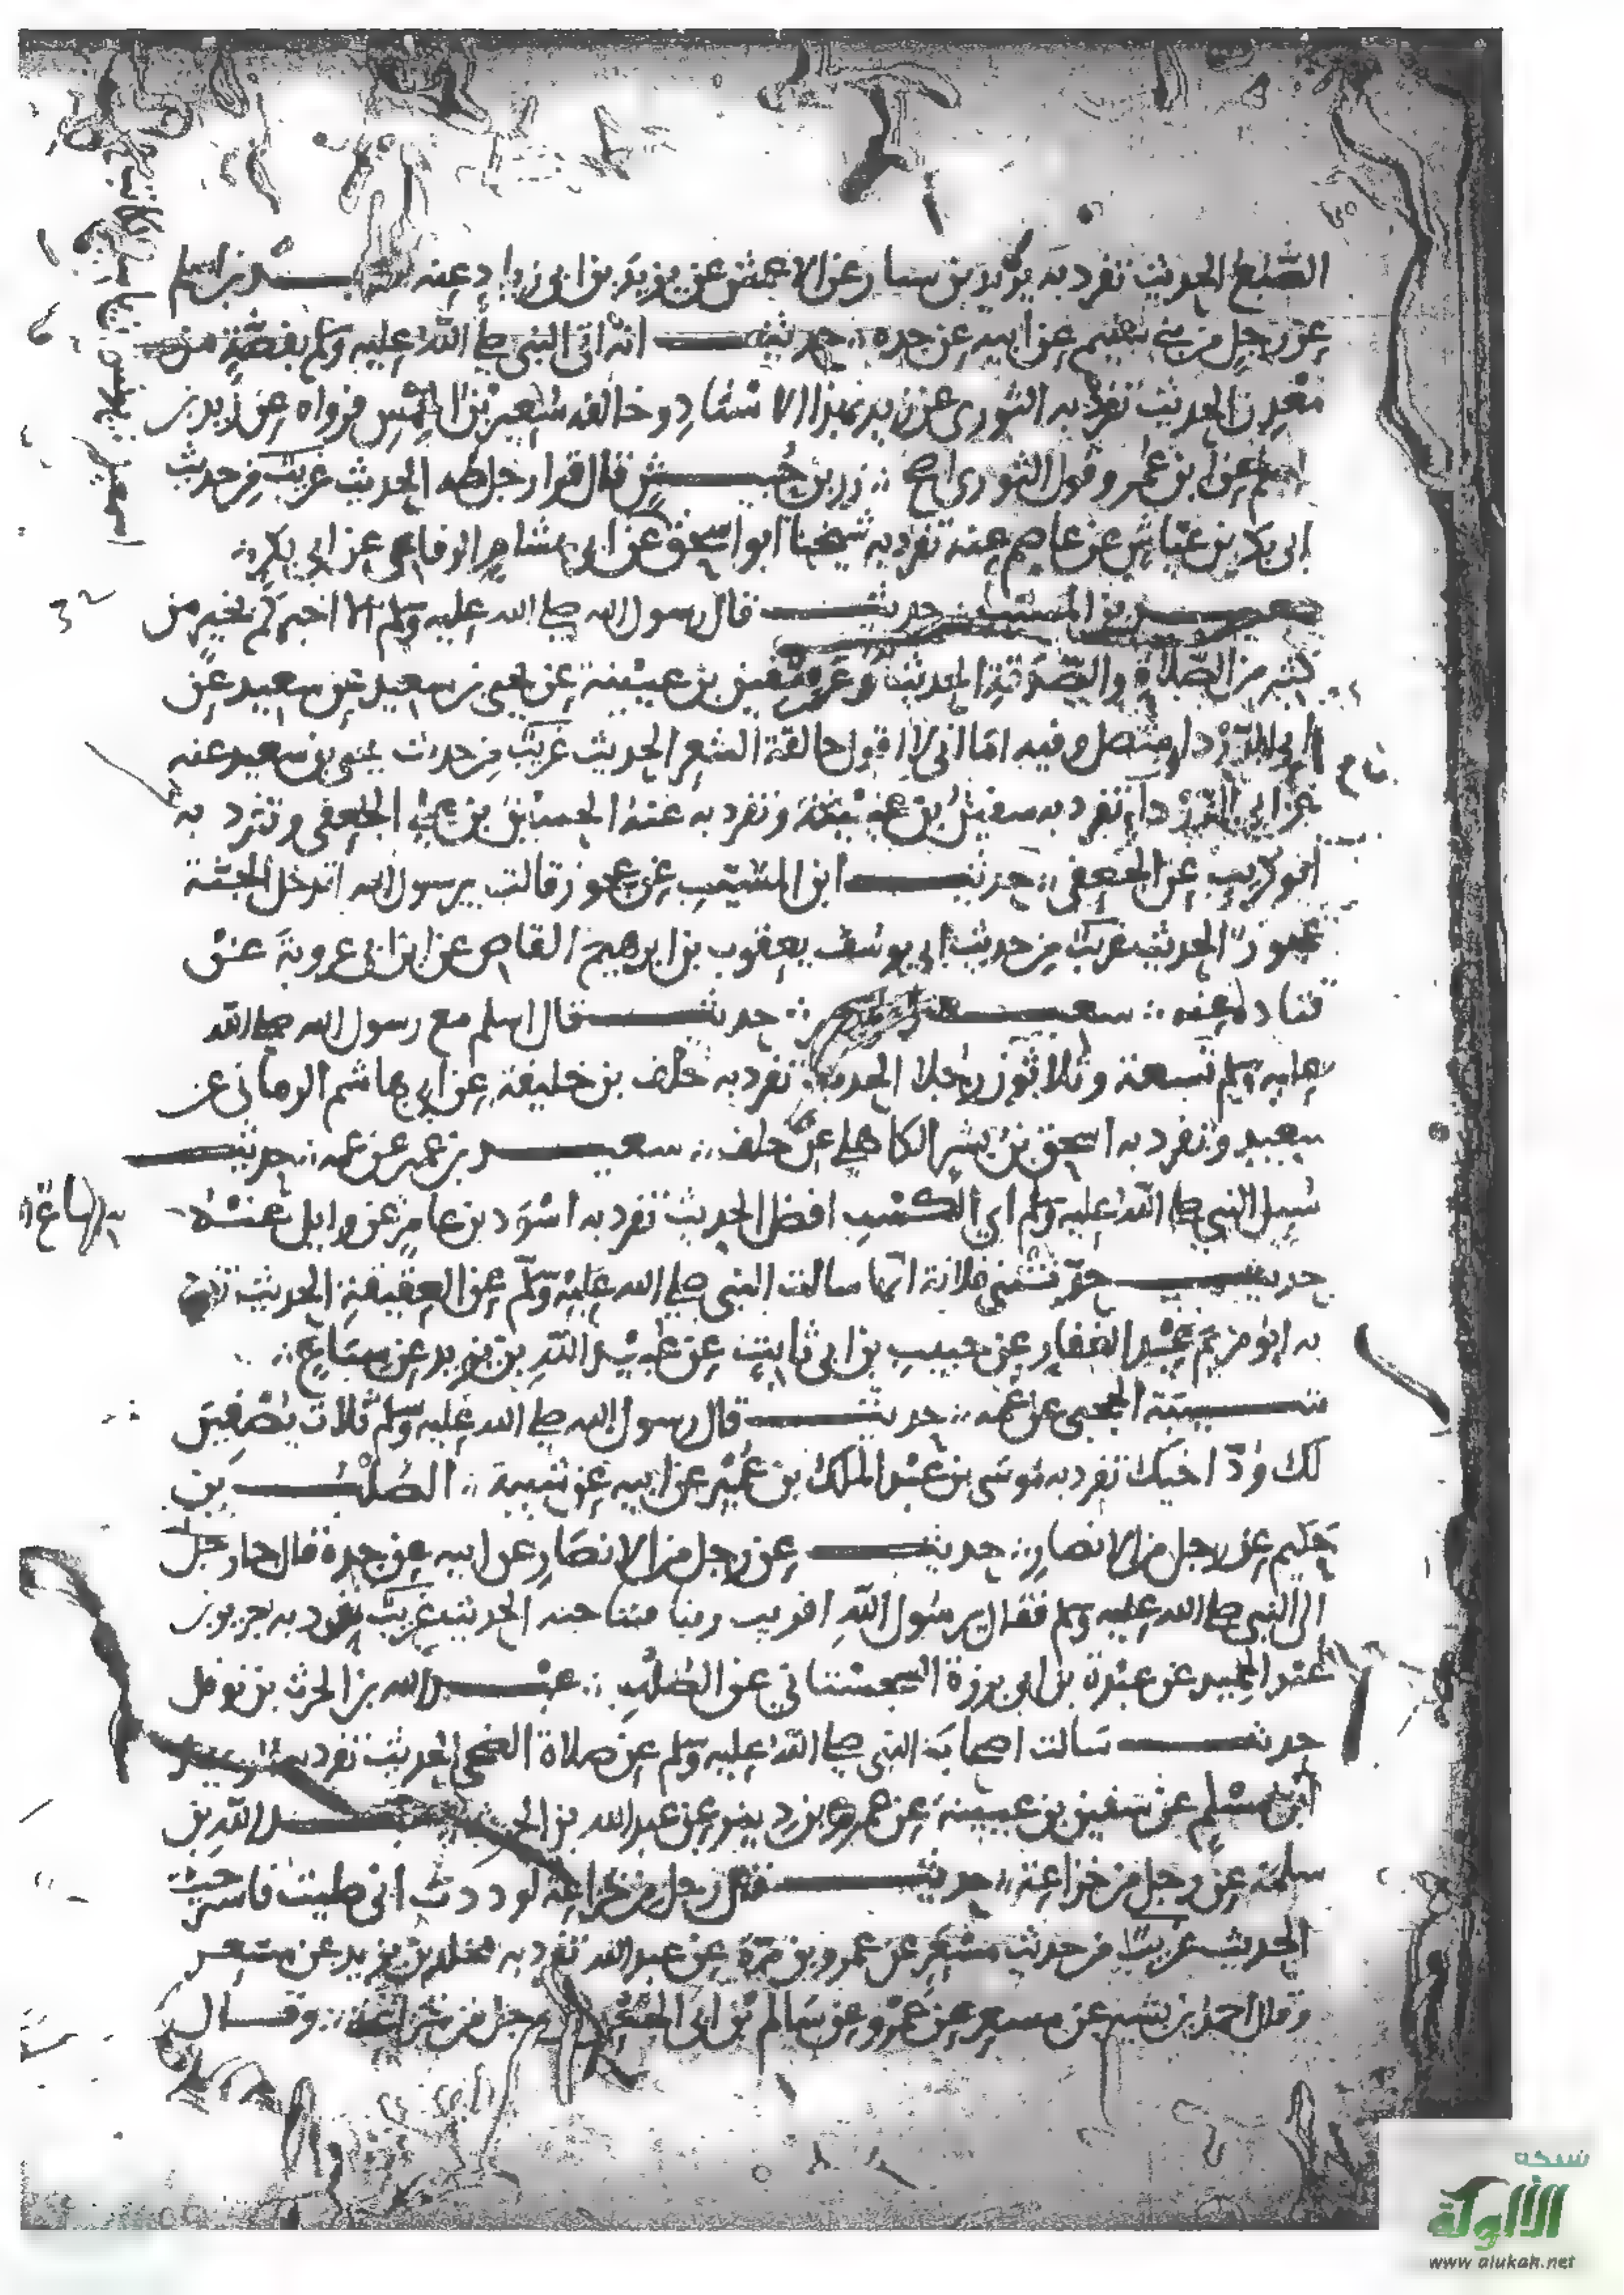 الضبع الحديث تفرد به يزيد بن سنان عن الاعمش عن يزيد بن ابي زياد عنه زيد بن اسلم
عن رجل من بني سليم عن ابيه عن جده حديث انه اتى النبي صلى الله عليه وسلم بفضة من
معدن الحديث تفرد به الثوري عن زيد بهذا الاسناد وخالفه سعير بن الخمس فرواه عن زيد بن
اسلم عن ابن عمر وقول الثوري اصح زر بن حبيش قال قرا رجل طه الحديث غريب من حديث
ابي بكر بن عياش عن عاصم عنه تفرد به شيخنا ابو اسحق عن ابي هشام الرفاعي عن ابي بكر
سعيد بن المسيب حديث قال رسول الله صلى الله عليه وسلم الا اخبركم بخير من
كثير من الصلاة والصدقة الحديث سفين بن عيينة عن يحيى بن سعيد عن سعيد عن
ابي الدرداء متصل وفيه اما اني لا اقول حالقة الشعر الحديث غريب من حديث يحيى بن سعيد عنه
عن ابي الدرداء تفرد به سفين بن عيينة وتفرد به عنه الحسين بن علي الجعفي وتفرد به
ابو كريب عن الجعفي حديث ابن المسيب عن عجوز قالت يرسول الله اتدخل الجنة
عجوز الحديث غريب من حديث ابي يوسف يعقوب بن ابرهيم القاص عن ابن ابي عروبة عن
قتادة عنه سعيد بن جبير حديث قال اسلم مع رسول الله صلى الله
عليه وسلم تسعة وثلاثون رجلا الحديث تفرد به خلف بن خليفة عن ابي هاشم الرماني عن
سعيد وتفرد به اسحق بن بشر الكاهلي عن خلف سعيد بن عمير عن عمه حديث
سيل النبي صلى الله عليه وسلم اي الكسب افضل الحديث تفرد به اسود بن عامر عن وايل عنه
حديث حدثتني فلانة انها سالت النبي صلى الله عليه وسلم عن العقيقة الحديث تفرد
به ابو مريم عبد الغفار عن حبيب بن ابي ثابت عن عبيد الله بن يزيد عن سباع
شيبة الحجبي عن عمه حديث قال رسول الله صلى الله عليه وسلم ثلاث يصفين
لك ود اخيك تفرد به موسى بن عبد الملك بن عمير عن ابيه عن شيبة الصلب بن
حكيم عن رجل من الانصار حديث عن رجل من الانصار عن ابيه عن جده قال جا رجل
الى النبي صلى الله عليه وسلم فقال يرسول الله اقريب ربنا فنناجيه الحديث غريب تفرد به جرير بن
عبد الحميد عن عبدة بن ابي برزة السجستاني عن الصلب عبد الله بن الحرث بن نوفل
حديث سالت اصحاب النبي صلى الله عليه وسلم عن صلاة الضحى الحديث تفرد به الوليد
ابن مسلم عن سفين بن عيينة عن عمرو بن دينر عن عبد الله بن الحرث عبد الله بن
سلمة عن رجل من خزاعة حديث قال رجل من خزاعة لوددت اني صليت فاسترحت
الحديث غريب من حديث مسعر عن عمرو بن مرة عن عبد الله تفرد به مخلد بن يزيد عن مسعر
وقال احمد بن بشير عن مسعر عن عمرو عن سالم بن ابي الجعد عن رجل من خزاعة وقال
شبكة
الألوكة
www.alukah.net